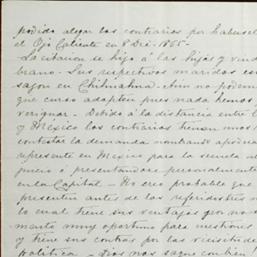 podido alegar los contrarios por haberse
el Ojo Caliente en 8 Dic. 1885 -
La citacion se hizo á las hijas y viuda
brano - Sus respectivos maridos es
sagon en Chihuahua - Aun no podem
que curso adapten pues nada hemos
veriguar - Debido á la distancia entre
y Mexico los contrarios tienen
contestar la demanda nombrando apodera
represente en Mexico para la secuela
juicio ó presentandose personalmente
en la Capital - No creo probable que
presenten antes de las
lo cual tiene sus ventajas por
mento muy oportuno para nuestros
y tiene sus contras por las vicisitudes
politica - Dios nos saque con bien!